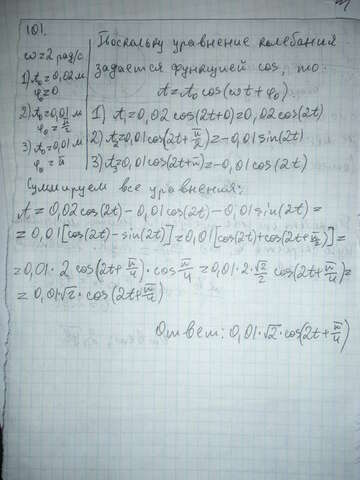 101.
ω=2 рад/с
1) A₀=0,02 м
φ₀=0
2) A₀=0,01 м
φ₀=π/2
3) A₀=0,01 м
φ₀=π
Поскольку уравнение колебания
задается функцией cos, то
A=A₀cos(ωt+φ₀)
1) A₁=0,02cos(2t+0)=0,02cos(2t)
2) A₂=0,01cos(2t+π/2)=-0,01sin(2t)
3) A₃=0,01cos(2t+π)=-0,01cos(2t)
Суммируем все уравнения:
A=0,02cos(2t)-0,01cos(2t)-0,01sin(2t)=
=0,01[cos(2t)-sin(2t)]=0,01[cos(2t)+cos(2t+π/2)]=
=0,01·2cos(2t+π/4)·cos π/4=0,01·2·√2/2 cos(2t+π/4)=
=0,01√2·cos(2t+π/4)
Ответ: 0,01·√2·cos(2t+π/4)